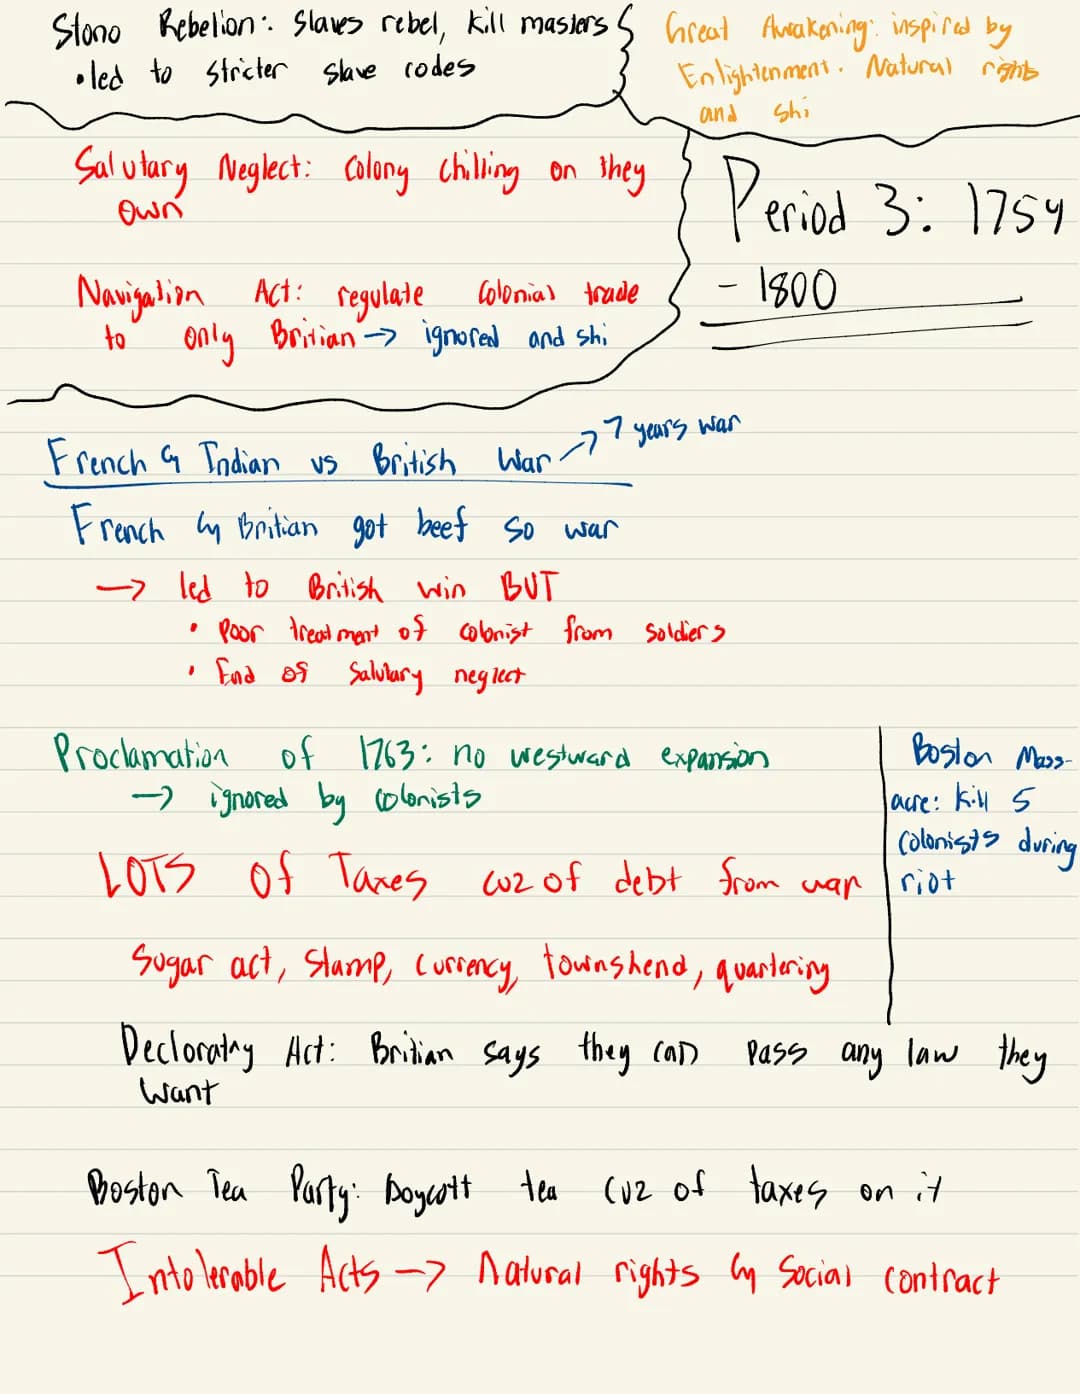 Stono Rebelion: Slaves rebel, kill masters
•led to stricter slave codes
Great Awakening: inspired by
Enlightenment. Natural rights
and shi
Salutary Neglect: Colony chilling on they
own
Navigation Act: regulate colonial trade
to only Britian → ignored and shi
Period 3: 1754
- 1800
French & Indian vs British War → 7 years war
French & Britian got beef so war
→ led to British win BUT
• Poor treatment of colonist from soldiers
• End of Salutary neglect
Proclamation of 1763: no westward expansion
→ ignored by colonists
Boston Mass-
acre: kill 5
colonists during
riot
LOTS of Taxes cuz of debt from war
Sugar act, Stamp, currency, townshend, quartering
Decloratry Act: Britian says they can pass any law they
want
Boston Tea Party: boycott tea cuz of taxes on it
Intolerable Acts → Natural rights & Social contract